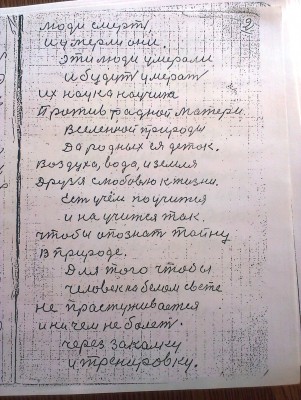 2
люди смерт
и умерли они.
Эти люди умерали
и будут умерат
их наука научила
Против радной матери.
Вселенной природы
Да родных ея деток.
Воздуха, вода, и земля
Друзя с любовью к жизни.
Есть учём поучится
и научится так.
чтоби опознат тайну
в природе.
Для того чтобы
человек на белом свете
не прастуживается
и ничем не болет.
через закалку
и тренировку.